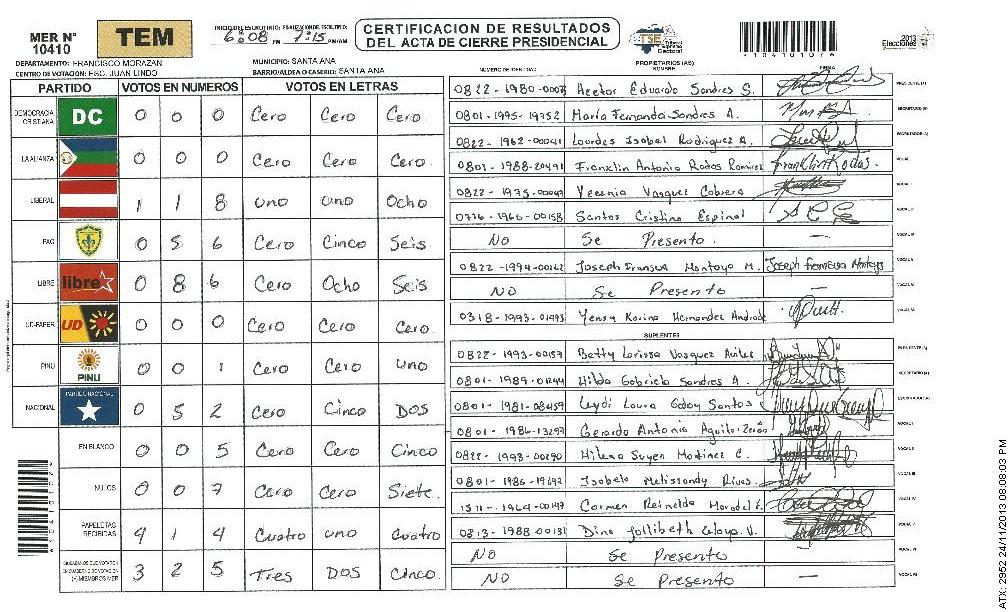 MER N° 10410
TEM
INICIO DEL ESCRUTINIO: FINALIZACION DEL ESCRUTINIO:
6:08 PM 7:15 PM/AM
CERTIFICACION DE RESULTADOS
DEL ACTA DE CIERRE PRESIDENCIAL
TSE Tribunal Supremo Electoral
2013 Elecciones
DEPARTAMENTO: FRANCISCO MORAZAN
MUNICIPIO: SANTA ANA
CENTRO DE VOTACION: ESC. JUAN LINDO
BARRIO/ALDEA O CASERIO: SANTA ANA
PARTIDO VOTOS EN NUMEROS VOTOS EN LETRAS
DEMOCRACIA CRISTIANA DC 0 0 0 Cero Cero Cero
LA ALIANZA 0 0 0 Cero Cero Cero
LIBERAL 1 1 8 uno uno Ocho
PAC 0 5 6 Cero Cinco Seis
LIBRE libre 0 8 6 Cero Ocho Seis
UD-FAPER UD 0 0 0 Cero Cero Cero
PINU PINU 0 0 1 Cero Cero uno
NACIONAL PARTIDO NACIONAL 0 5 2 Cero Cinco DOS
EN BLANCO 0 0 5 Cero Cero Cinco
NULOS 0 0 7 Cero Cero Siete
PAPELETAS RECIBIDAS 4 1 4 Cuatro uno Cuatro
CIUDADANOS QUE VOTARON EN CUADERNO DE VOTACION (+) MIEMBROS MER 3 2 5 Tres DOS Cinco
NUMERO DE IDENTIDAD PROPIETARIOS (AS) NOMBRE FIRMA
Hector Eduardo Sandres S. PRESIDENTE (A)
0801-1995-19752 Maria Fernanda Sandres A. SECRETARIO (A)
0822-1962-00041 Lourdes Isabel Rodriguez A. ESCRUTADOR (A)
0801-1988-20491 Franklin Antonio Rodas Ramirez Franklin Rodas VOCAL I
0822-1975-00047 Yecenia Vasquez Cabrera VOCAL II
Santos Cristina Espinal VOCAL III
No Se Presento — VOCAL IV
Joseph Fransua Montoya M. VOCAL V
NO Se Presento — VOCAL VI
0318-1993-01493 Yensy Karina Hernandez Andrade VOCAL VII
SUPLENTES
0822-1993-00157 Betty Larissa Vasquez Aviles PRESIDENTE (A)
0801-1989-01244 Hilda Gabriela Sandres A. SECRETARIO (A)
0801-1981-08459 Leydi Laura Godoy Santos ESCRUTADOR (A)
0801-1986-13297 Gerardo Antonio Aguilar VOCAL I
0822-1993-00290 Hilena Suyen Martinez C. VOCAL II
Isabela Melissandy Rivas VOCAL III
Carmen Reinelda VOCAL IV
0813-1988-00131 VOCAL V
No Se Presento VOCAL VI
NO Se Presento — VOCAL VII
ATX: 2952 24/11/2013 08:08:03 PM